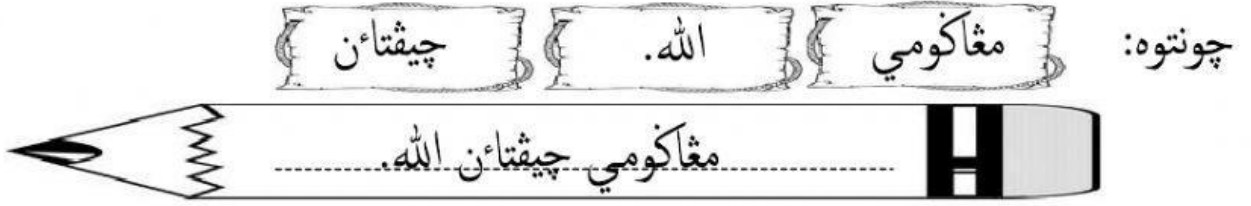 چونتوه: مڠاݢومي الله. چيڤتاءن
مڠاݢومي چيڤتاءن الله.